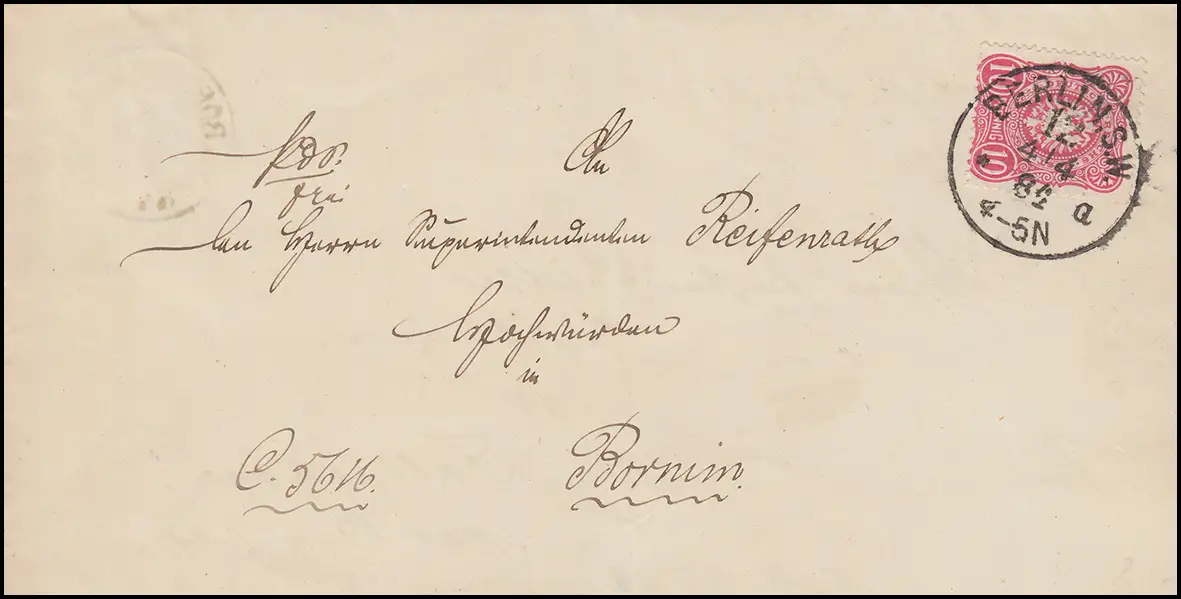 BERLIN.S.W.
12
4/4
84 a
4-5N
10
PFENNIG
10
frei
An
den Herrn Superintendenten Reifenrath
Hochwürden
in
C. 5616.
Bornim.